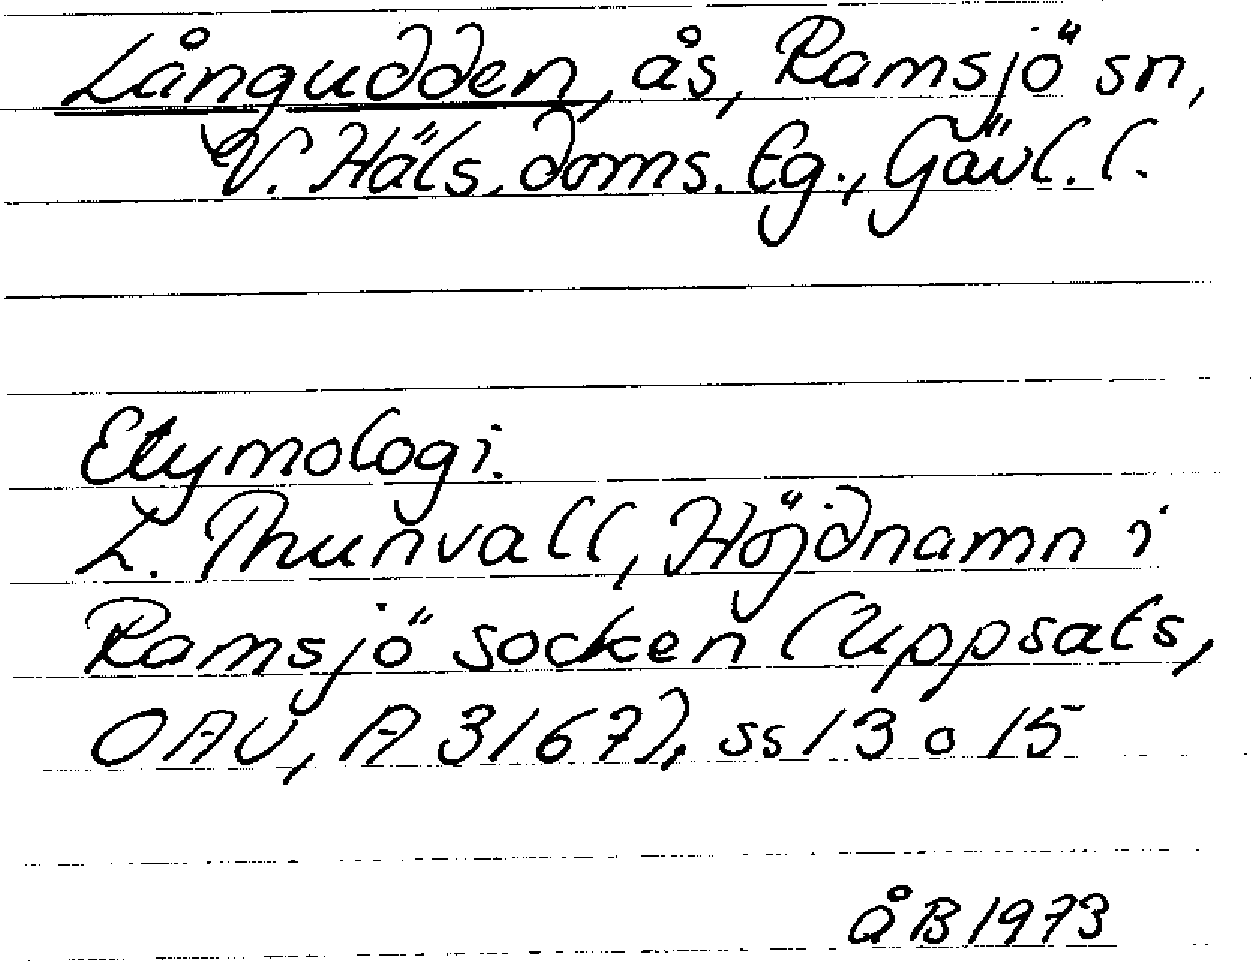 Långudden, ås, Ramsjö sn,
V. Häls. doms. tg., Gävl. l.
Etymologi.
L. Thunvall, Höjdnamn i
Ramsjö socken (Uppsats,
OAU, A 3167), ss 13 o 15
åB 1973